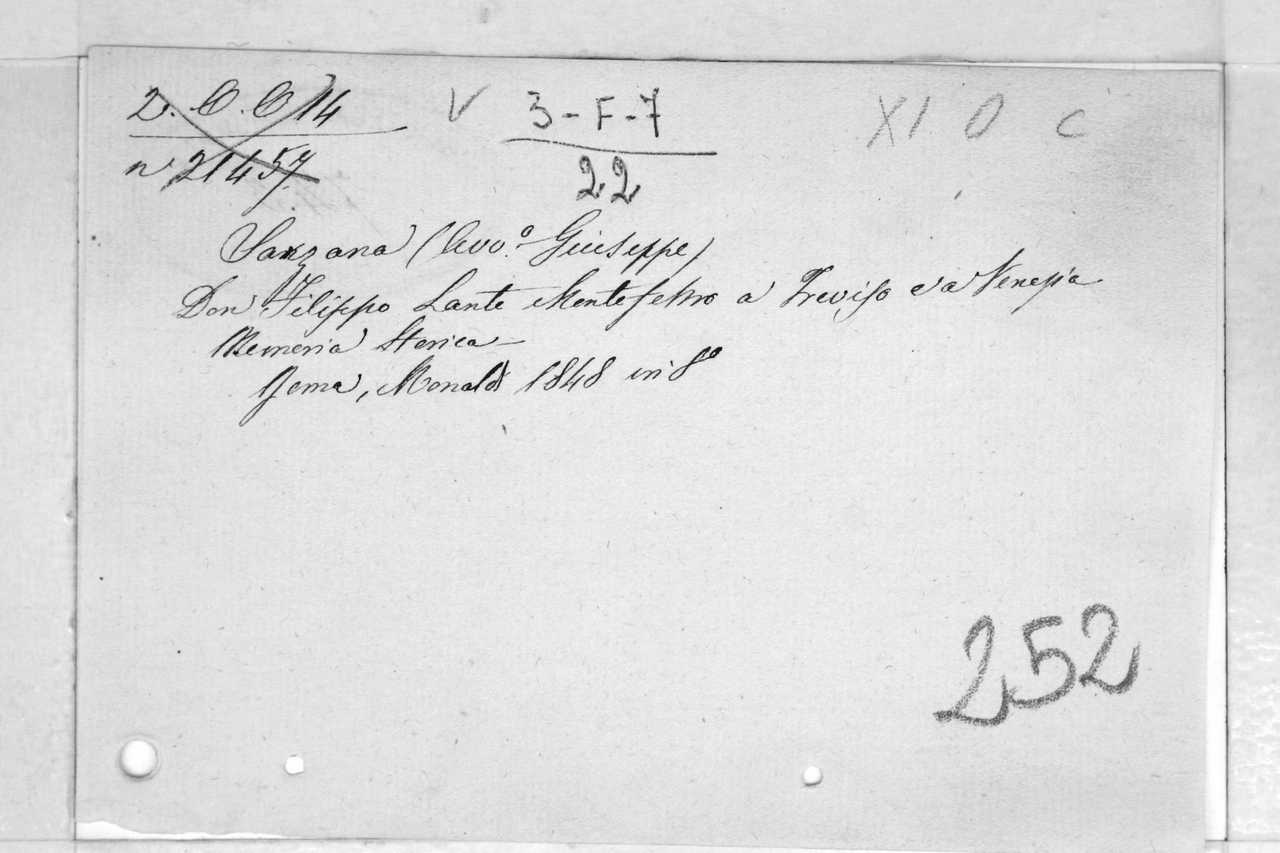 2. C. C 14 V 3-F-7 XI O C
n 21457 22
Sarzana (Avv.º Giuseppe)
Don Filippo Lante Montefeltro a Treviso e a Venezia
Memoria Storica
Roma, Monaldi 1848 in 8º
252